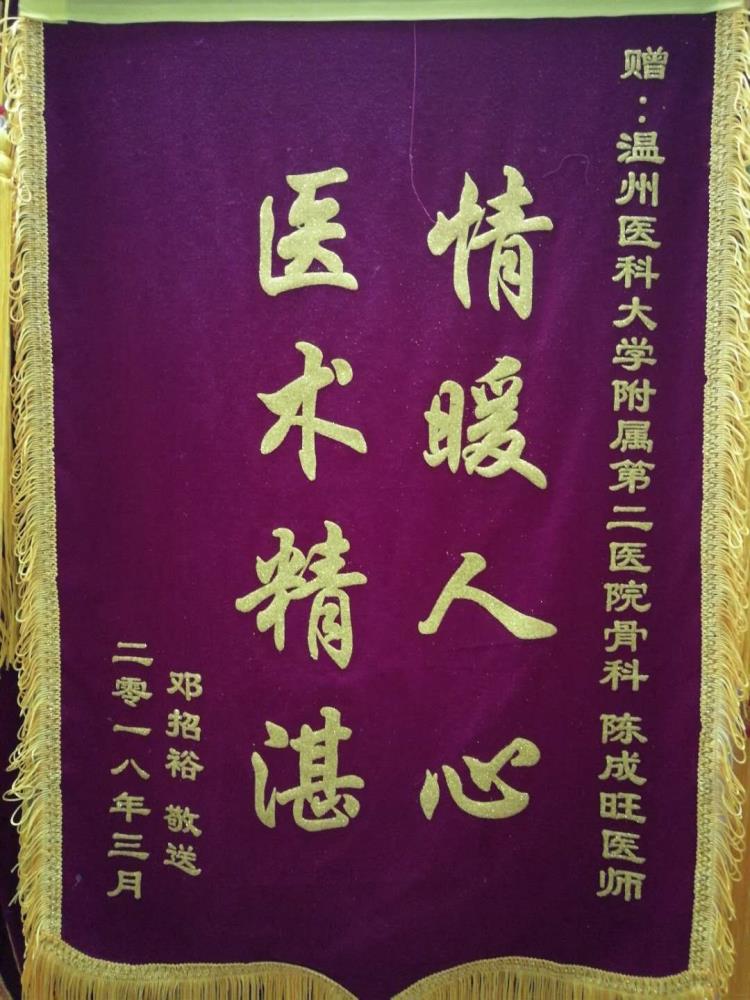 赠：温州医科大学附属第二医院骨科 陈成旺医师
情暖人心
医术精湛
邓招裕 敬送
二零一八年三月